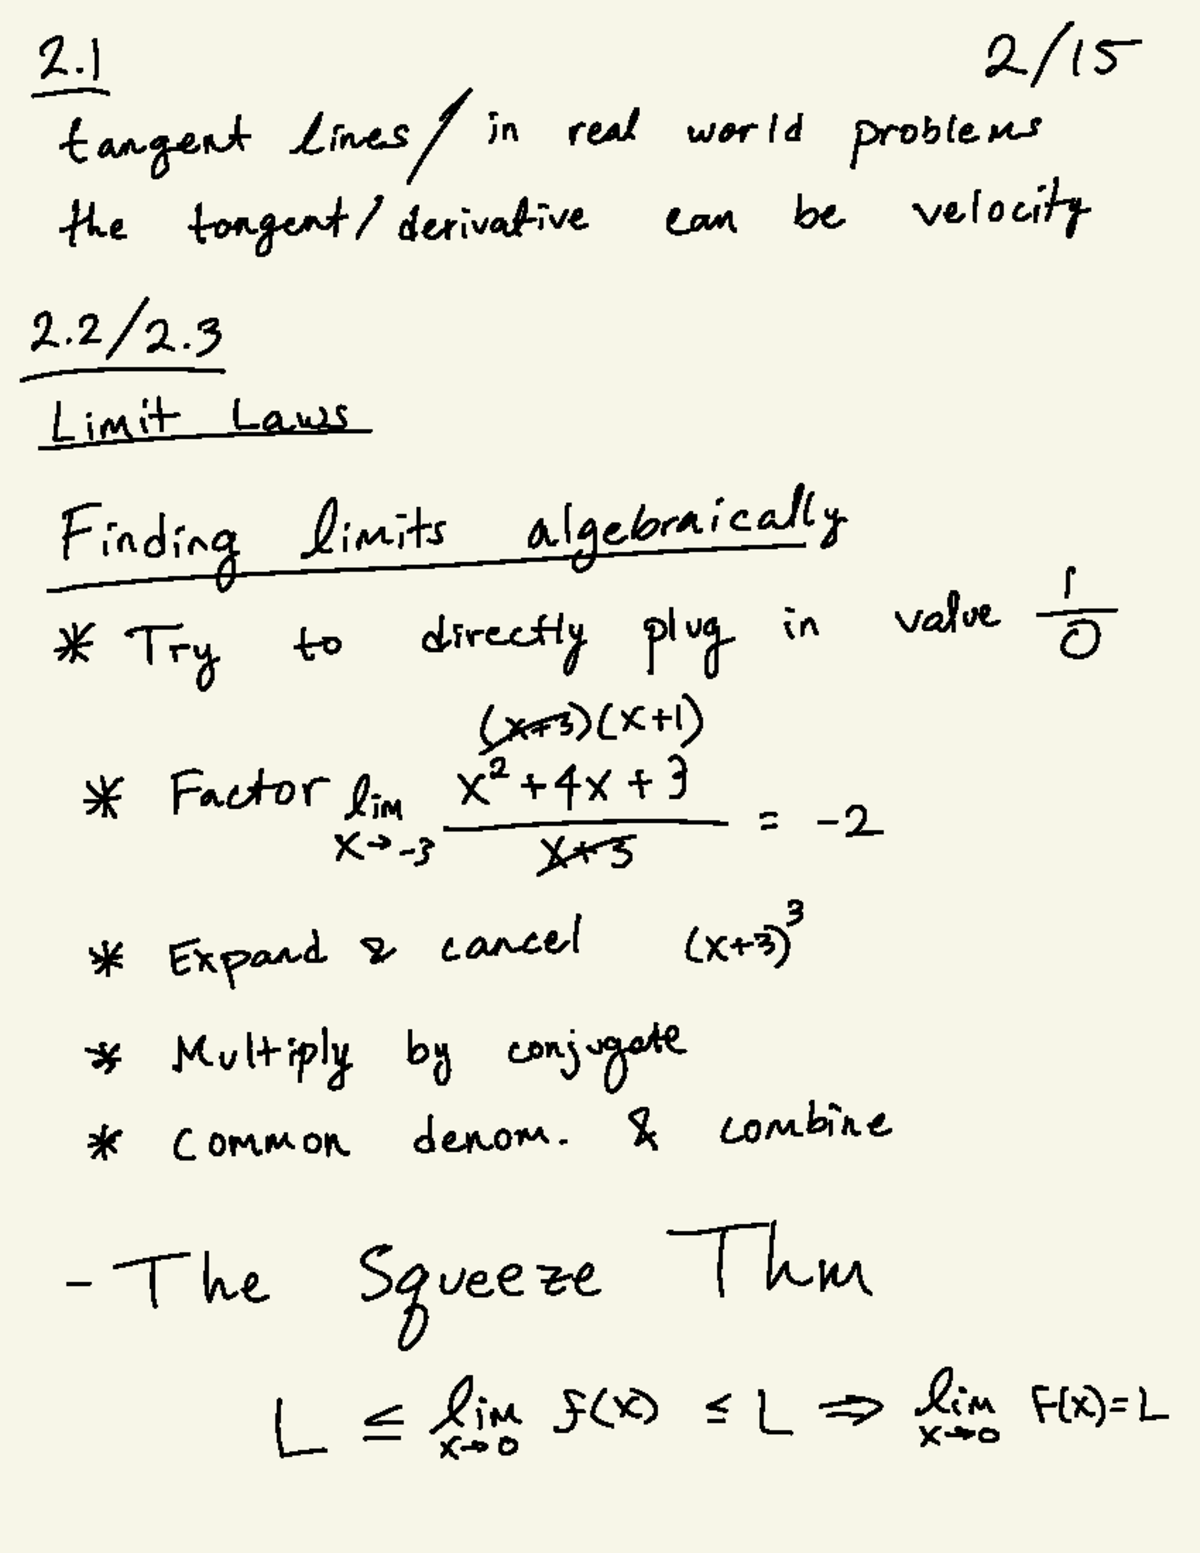 2.1 2/15
tangent lines/in real world problems
the tangent/derivative can be velocity
2.2/2.3
Limit Laws
Finding limits algebraically
* Try to directly plug in value 1/0
(x+3)(x+1)
* Factor lim x→-3 x²+4x+3 / x+3 = -2
* Expand & cancel (x+3)³
* Multiply by conjugate
* Common denom. & combine
- The Squeeze Thm
L ≤ lim x→0 f(x) ≤ L ⇒ lim x→0 F(x)=L